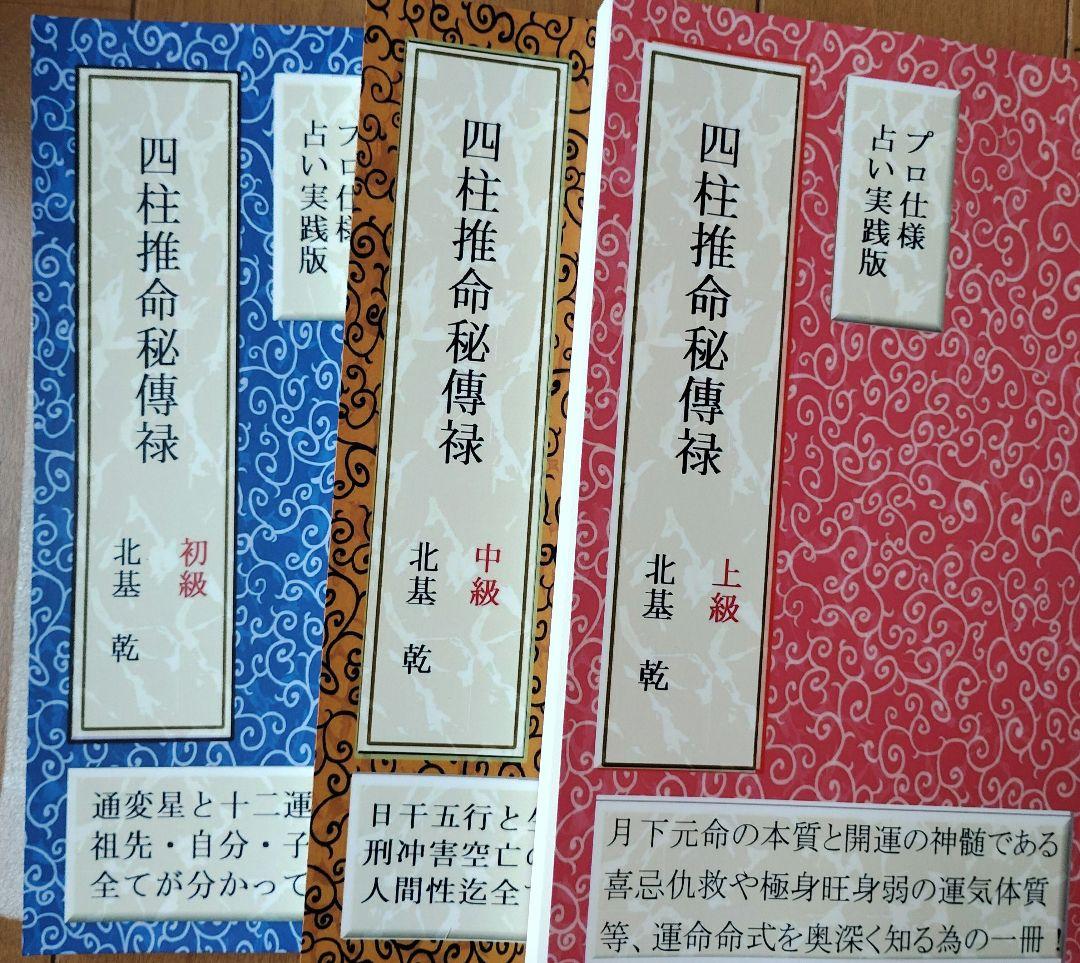 プロ仕様
占い実践版
四柱推命秘傳禄
初級
北基 乾
通変星と十二運
祖先・自分・子
全てが分かって
四柱推命秘傳禄
中級
北基 乾
日干五行と
刑冲害空亡の
人間性迄全
プロ仕様
占い実践版
四柱推命秘傳禄
上級
北基 乾
月下元命の本質と開運の神髄である
喜忌仇救や極身旺身弱の運気体質
等、運命命式を奥深く知る為の一冊!